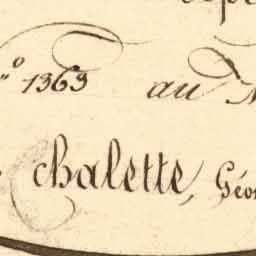 n.º 1363 au
chalette, Géo